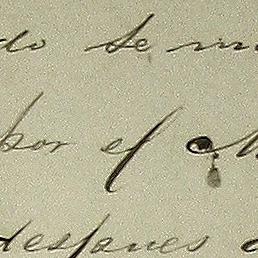 do se m
por el M
despues